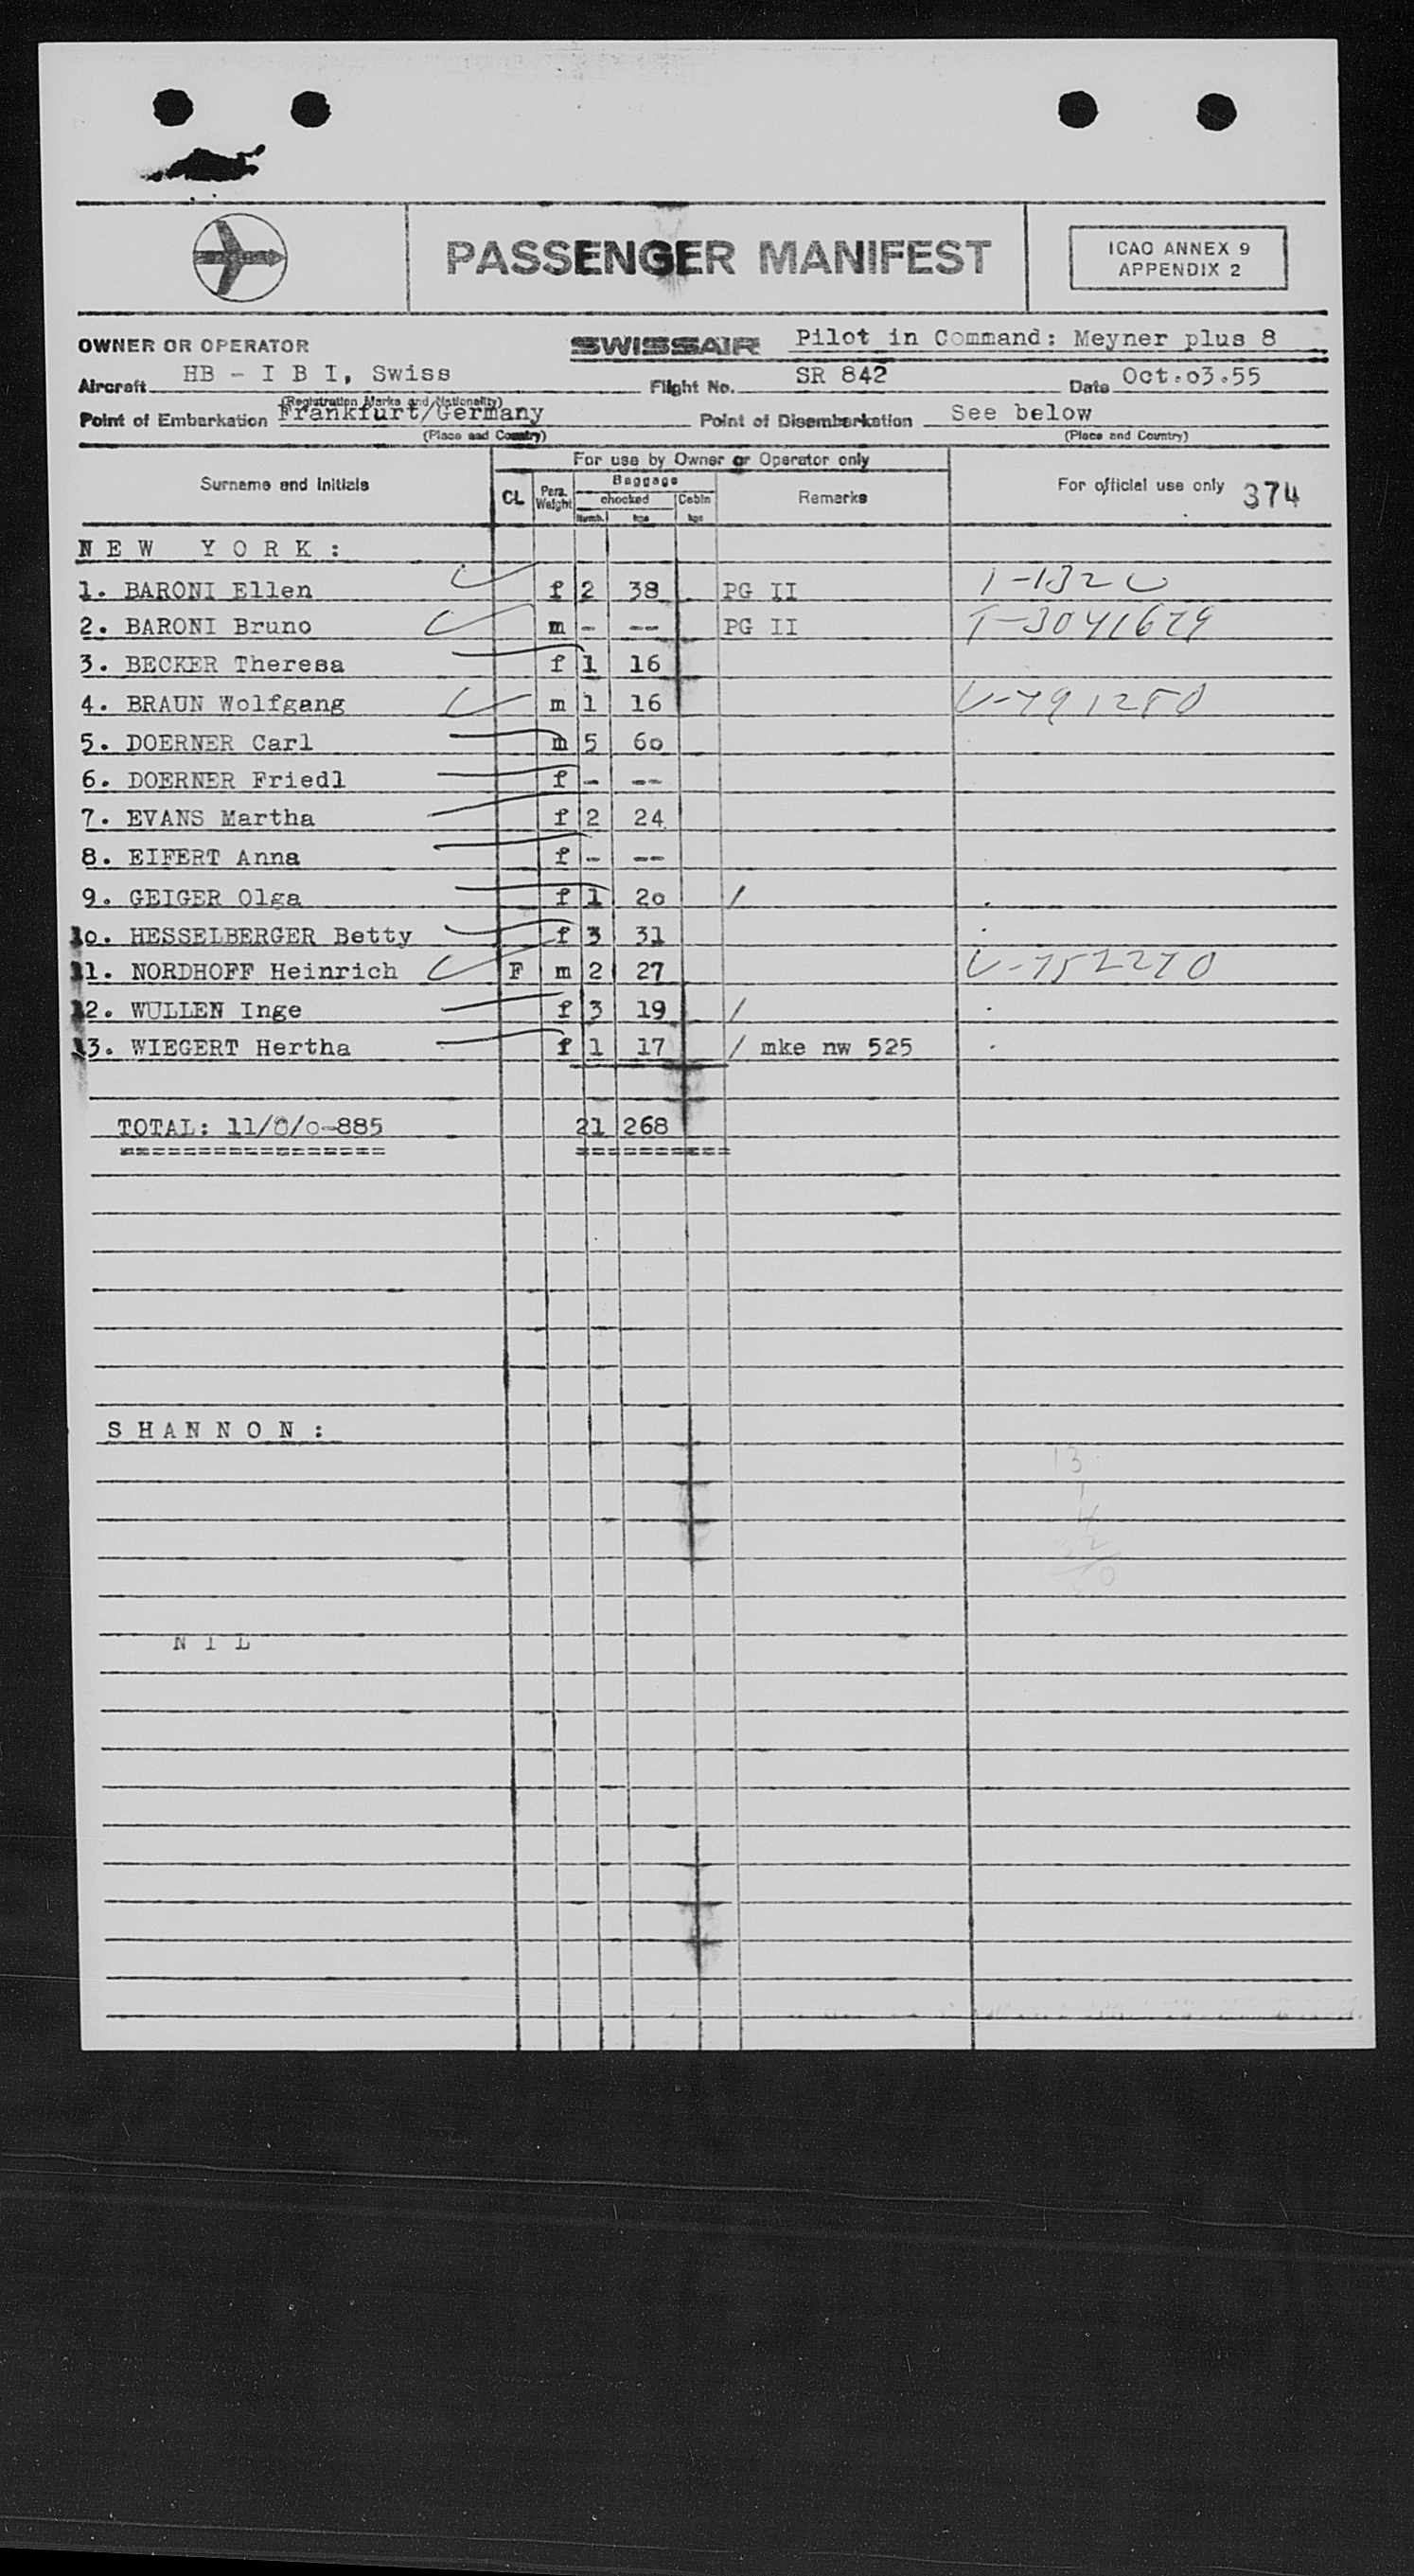 PASSENGER MANIFEST
ICAO ANNEX 9
APPENDIX 2
OWNER OR OPERATOR SWISSAIR Pilot in Command: Meyner plus 8
Aircraft HB - I B I, Swiss Flight No. SR 842 Date Oct.o3.55
(Registration Marks and Nationality)
Point of Embarkation Frankfurt/Germany Point of Disembarkation See below
(Place and Country) (Place and Country)
For use by Owner or Operator only
Surname and Initials CL Pers. Weight Baggage checked Numb. kgs Cabin kgs Remarks For official use only 374
N E W Y O R K :
1. BARONI Ellen f 2 38 PG II
2. BARONI Bruno m - -- PG II T-3041679
3. BECKER Theresa f 1 16
4. BRAUN Wolfgang m 1 16 V-791280
5. DOERNER Carl m 5 6o
6. DOERNER Friedl f - --
7. EVANS Martha f 2 24
8. EIFERT Anna f - --
9. GEIGER Olga f 1 2o /
1o. HESSELBERGER Betty f 3 31
11. NORDHOFF Heinrich F m 2 27 V-752270
12. WULLEN Inge f 3 19 /
13. WIEGERT Hertha f 1 17 / mke nw 525
TOTAL: 11/0/o-885 21 268
S H A N N O N :
13
1
4
N I L